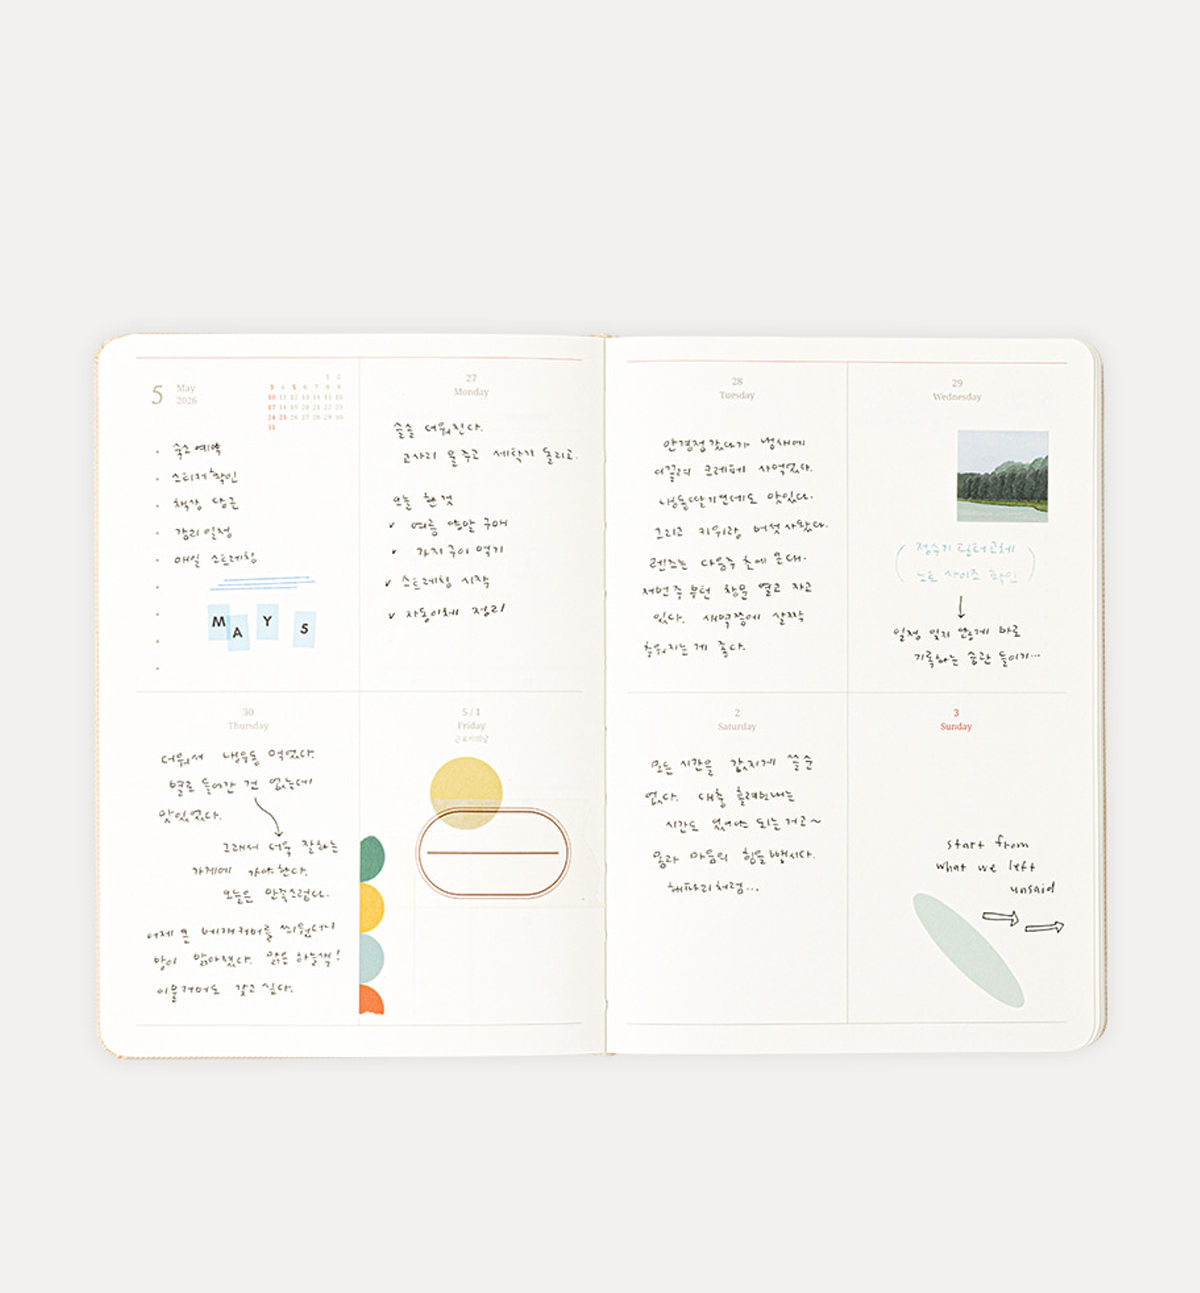 5
May
2026
1 2
3 4 5 6 7 8 9
10 11 12 13 14 15 16
17 18 19 20 21 22 23
24 25 26 27 28 29 30
31
숙소 예약
스티커 확인
책장 당근
강릉 일정
매일 스트레칭
M A Y 5
27
Monday
슬슬 더워진다.
고사리 물 주고 세탁기 돌리고.
오늘 한 것
여름 양말 구매
가지구이 먹기
스트레칭 시작
자동이체 정리
30
Thursday
더워서 냉우동 먹었다.
별로 들어간 건 없는데
맛있었다.
그래서 더욱 잘하는
가게에 가야 한다.
오늘은 만족스럽다.
어제 큰 베개커버를 씌웠더니
방이 맑아졌다. 맑은 하늘색!
이불커버도 갖고 싶다.
5 / 1
Friday
근로자의날
28
Tuesday
안경점 갔다가 냉새에
이끌려 크레페 사먹었다.
냉동딸기인데도 맛있다.
그리고 키위랑 버섯 사왔다.
렌즈는 다음주 초에 온대.
저번 주부턴 창문 열고 자고
있다. 새벽쯤에 살짝
추워지는 게 좋다.
29
Wednesday
정수기 필터교체
노트 사이즈 확인
일정 잊지 않게 바로
기록하는 습관 들이기...
2
Saturday
모든 시간을 값지게 쓸 순
없다. 대충 흘려보내는
시간도 있어야 되는 거고~
몸과 마음의 힘을 뺍시다.
해파리처럼...
3
Sunday
start from
what we left
unsaid